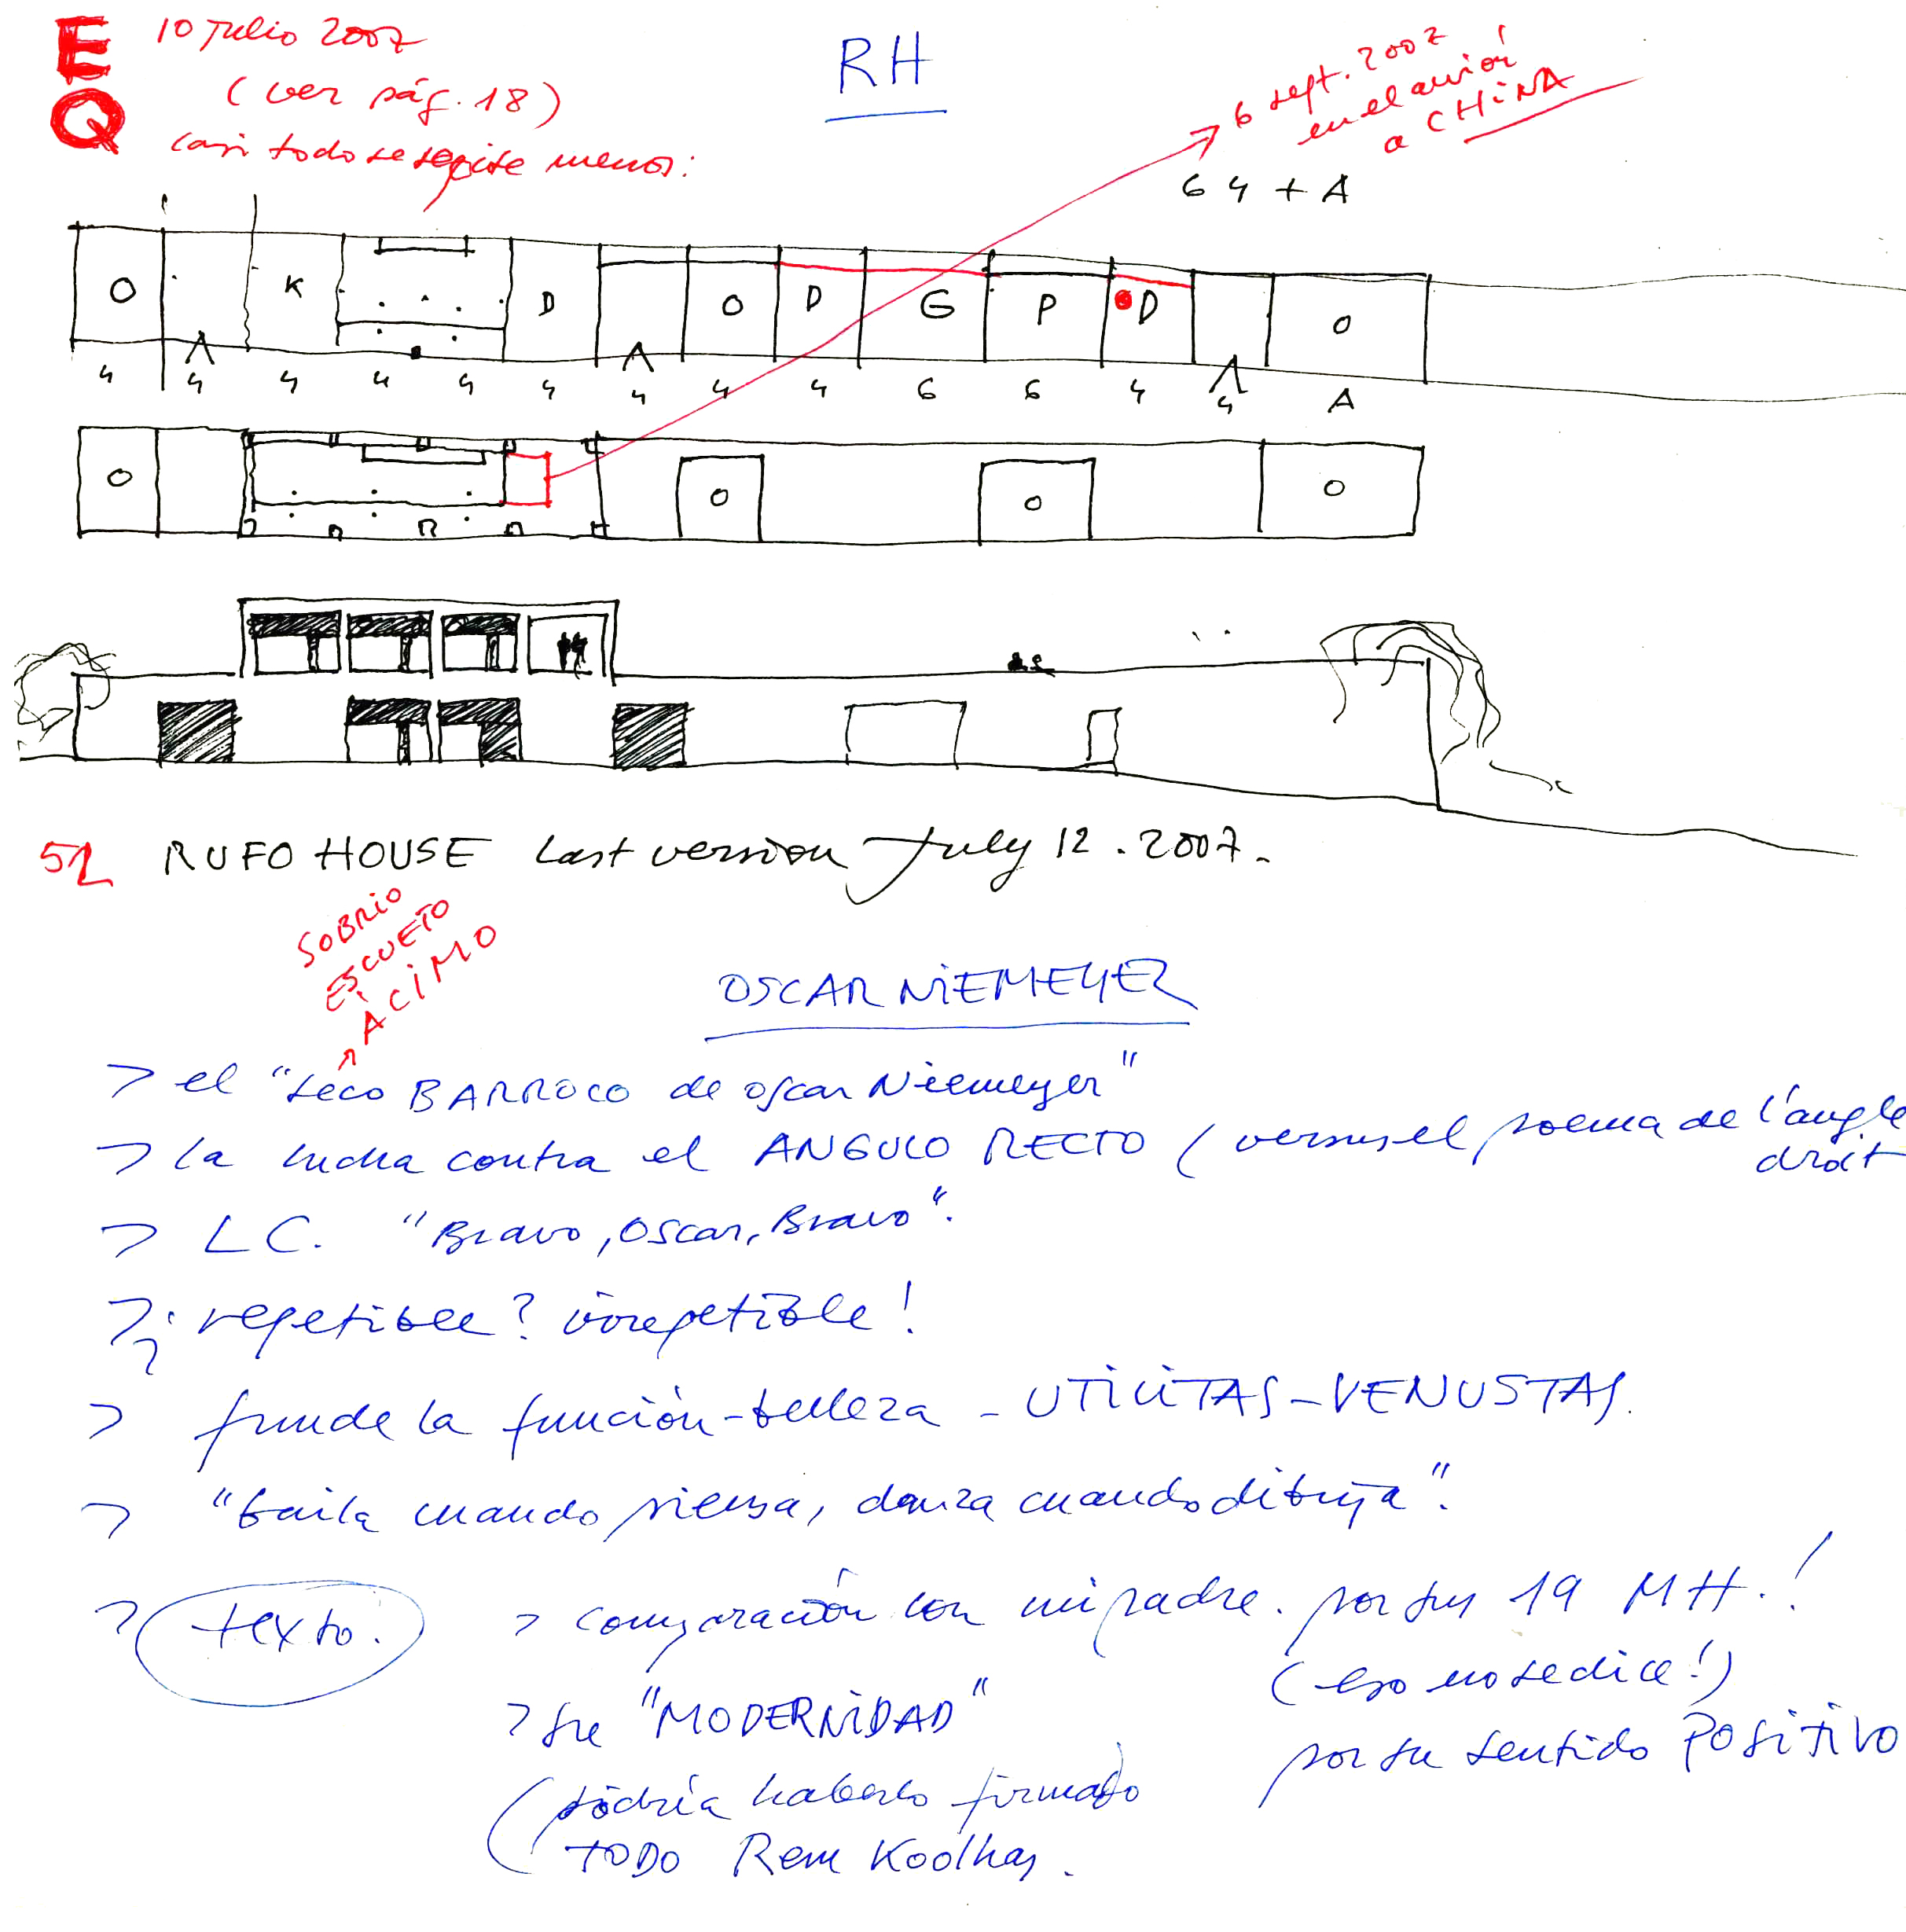 E
Q
10 Julio 2007
(ver pág. 18)
casi todo se repite menos:
RH
6 sept. 2007
en el avión
a CHINA
64 + A
O K D O D G P D O
4 4 4 4 4 4 4 4 4 6 6 4 4 A
O O O O
52 RUFO HOUSE last version July 12. 2007.
SOBRIO
ESCUETO
ÁCIMO
OSCAR NIEMEYER
> el "seco BARROCO de oscar Niemeyer"
> la lucha contra el ANGULO RECTO (versus el poema de l'angle
droit
> L C. "Bravo, Oscar, Bravo".
> ¿repetible? irrepetible!
> funde la función-belleza - UTILITAS-VENUSTAS.
> "baila cuando piensa, danza cuando dibuja".
> texto. > comparación con mi padre. por sus 19 MH.!
(eso no se dice!)
> su "MODERNIDAD"
por su sentido POSITIVO
(podría haberlo firmado
TODO Rem Koolhas.